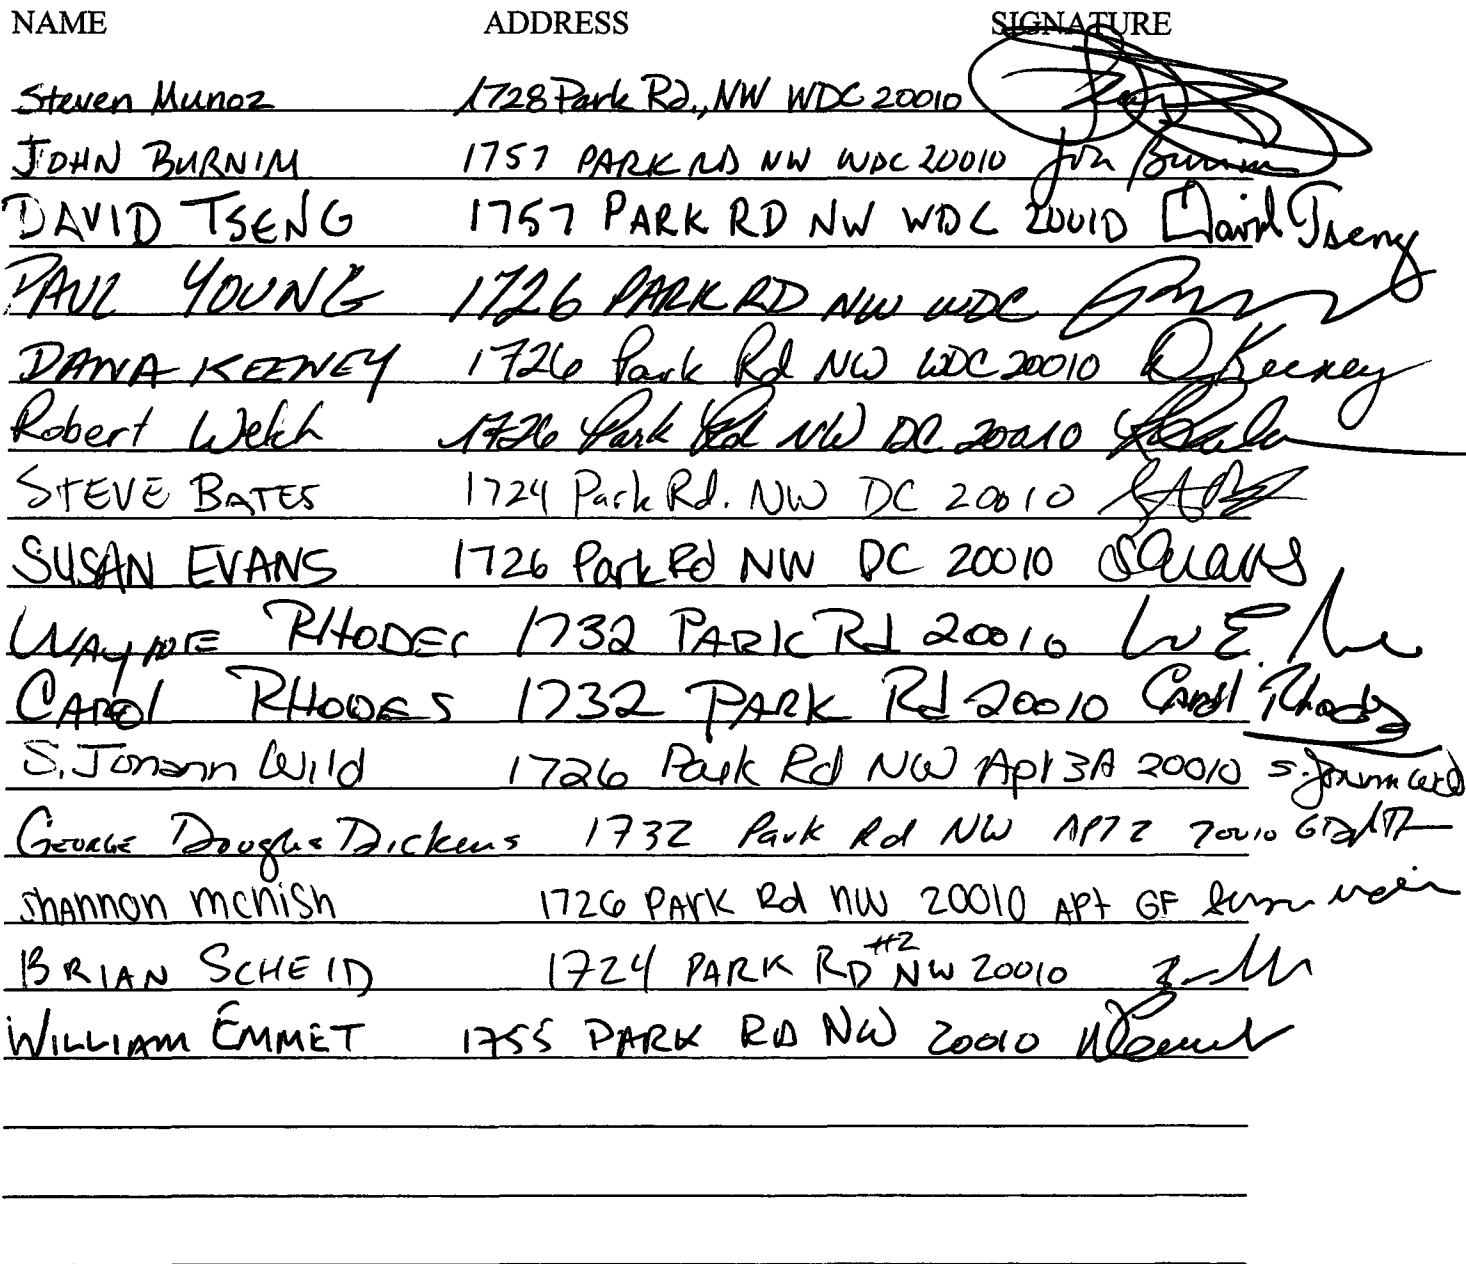 NAME ADDRESS SIGNATURE
Steven Munoz 1728 Park Rd., NW WDC 20010
JOHN BURNIM 1757 PARK RD NW WDC 20010 John Burnim
DAVID TSENG 1757 PARK RD NW WDC 20010 David Tseng
PAUL YOUNG 1726 PARK RD NW WDC
DANA KEENEY 1726 Park Rd NW WDC 20010 D Keeney
Robert Welch 1726 Park Rd NW DC 20010
STEVE BATES 1724 Park Rd. NW DC 20010
SUSAN EVANS 1726 Park Rd NW DC 20010 SEvans
WAYNE RHODES 1732 PARK Rd 20010 W E
CAROL RHODES 1732 PARK Rd 20010 Carol Rhodes
S. Jonann Wild 1726 Park Rd NW Apt 3A 20010 S. Jonann Wild
GEORGE Douglas Dickens 1732 Park Rd NW APT 2 20010
Shannon mcnish 1726 PArk Rd NW 20010 APt GF
BRIAN SCHEID 1724 PARK RD #2 NW 20010
WILLIAM EMMET 1755 PARK RD NW 20010 WEmmet